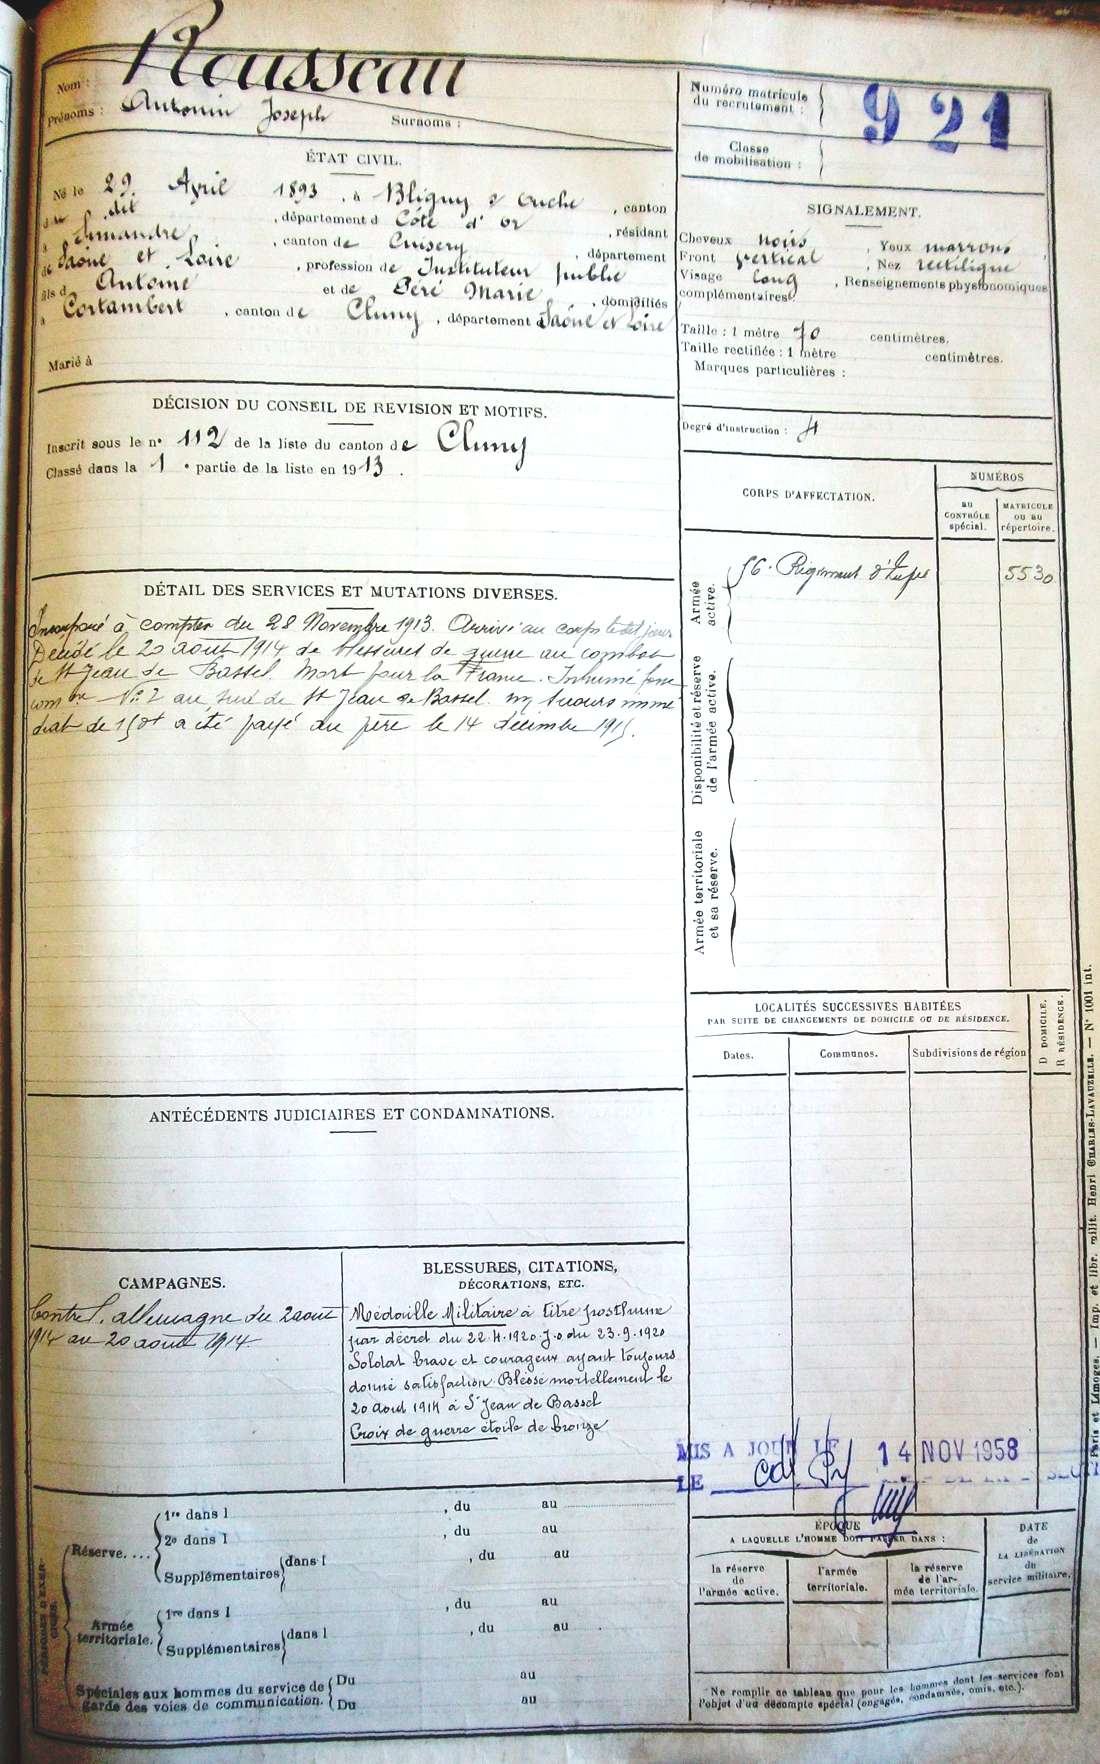 Nom : Rousseau
Prénoms : Antonin Joseph Surnoms :
Numéro matricule
du recrutement : 921
Classe
de mobilisation :
ÉTAT CIVIL.
Né le 29 Avril 1893, à Bligny s ouche, canton
dit, département d Côte d'or, résidant
à Simandre, canton de Cuisery, département
de Saône et Loire, profession de Instituteur public
fils d Antoine et de Péré Marie, domiciliés
à Cortambert, canton de Cluny, département d Saône et Loire
Marié à
SIGNALEMENT.
Cheveux noirs, Yeux marrons,
Front vertical, Nez rectiligne
Visage long, Renseignements physionomiques
complémentaires :
Taille : 1 mètre 70 centimètres.
Taille rectifiée : 1 mètre centimètres.
Marques particulières :
Degré d'instruction : 4
DÉCISION DU CONSEIL DE REVISION ET MOTIFS.
Inscrit sous le n° 112 de la liste du canton de Cluny
Classé dans la 1 e partie de la liste en 1913.
CORPS D'AFFECTATION.
NUMÉROS
AU
CONTRÔLE
spécial.
MATRICULE
ou au
répertoire.
Armée
active.
56e Régiment d'Infie
5530
Disponibilité et réserve
de l'armée active.
Armée territoriale
et sa réserve.
DÉTAIL DES SERVICES ET MUTATIONS DIVERSES.
Incorporé à compter du 28 Novembre 1913. Arrivé au corps ledit jour
Décédé le 20 août 1914 de blessures de guerre au combat
de St Jean de Bassel. Mort pour la France. Inhumé fosse
comne No 2 au sud de St Jean de Bassel. Un secours immé
diat de 150f a été payé au père le 14 décembre 1915.
LOCALITÉS SUCCESSIVES HABITÉES
PAR SUITE DE CHANGEMENTS DE DOMICILE OU DE RÉSIDENCE.
Dates.
Communes.
Subdivisions de région
D DOMICILE.
R RÉSIDENCE.
ANTÉCÉDENTS JUDICIAIRES ET CONDAMNATIONS.
CAMPAGNES.
Contre l'allemagne du 2 août
1914 au 20 août 1914.
BLESSURES, CITATIONS,
DÉCORATIONS, ETC.
Médaille Militaire à titre posthume
par décret du 22.4.1920 J.O du 23.9.1920
Soldat brave et courageux ayant toujours
donné satisfaction. Blessé mortellement le
20 août 1914 à St Jean de Bassel
Croix de guerre étoile de bronze
MIS A JOUR LE 14 NOV 1958
LE
PÉRIODES D'EXER-
CICES.
Réserve....
1re dans l , du au
2e dans l , du au
Supplémentaires dans l , du au
Armée
territoriale.
1re dans l , du au
Supplémentaires dans l , du au
Spéciales aux hommes du service de
garde des voies de communication.
Du au
Du au
ÉPOQUE
A LAQUELLE L'HOMME DOIT PASSER DANS :
la réserve
de
l'armée active.
l'armée
territoriale.
la réserve
de l'ar-
mée territoriale.
DATE
de
LA LIBÉRATION
du
service militaire.
Ne remplir ce tableau que pour les hommes dont les services font
l'objet d'un décompte spécial (engagés, condamnés, omis, etc.).
Paris et Limoges. — Imp. et libr. milit. Henri CHARLES-LAVAUZELLE. — N° 1001 int.